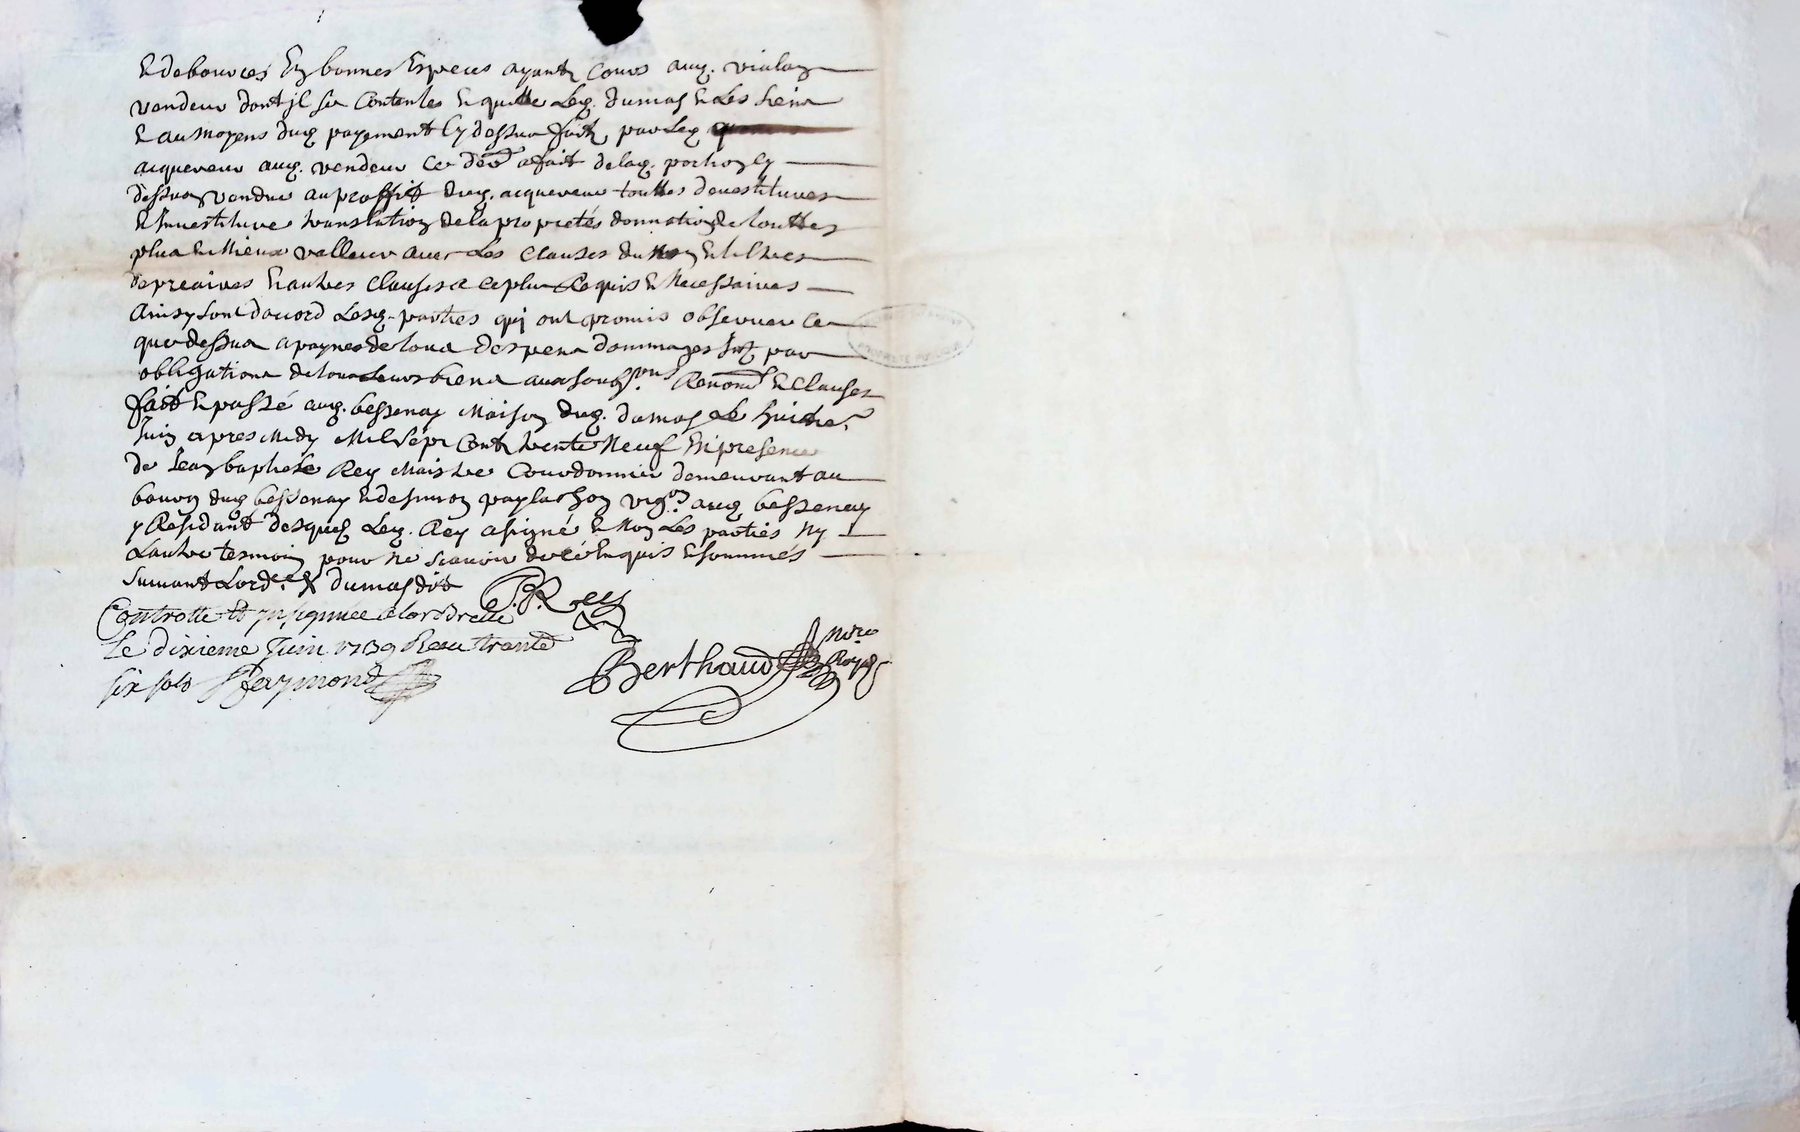 & debources En bonnes Especes ayant Cours aud. vialay
vendeur dont jl se Contentes & quitte Led. dumas & Les siens
& au moyens dud payement Cy dessus fait, par Led
acquereur aud. vendeur Ce der a fait de lad. portion Cy
dessus vendue au proffit dud. acquereur touttes devestitures
& Investiture translation de la proprietés donnation de touttes
plus & Mieux valleur avec Les Clauses du & tiltres
de precaires & autres Clauses a ce plus Requis & Necessaires
Ainsy sont dacord Lesd. parties qui ont promis observer Ce
que dessus a paynes de tous despens dommages Int par
obligations de tous Leurs biens aux soubs.ons Renon & Clauses
fait & passé aud. bessenay Maison dud. dumas Le huitie.
Juin apres Midy Mil sept Cent trente Neuf En presence
de Jean baptiste Rey Maistre Courdonnier demeurant au
bourg dud bessenay & de simon vign.on aud bessenay
y Residant desquels Led. Rey a signé & Non Les parties Ny
Lautre tesmoin pour ne scavoir de ce Enquis & sommés
suivant Lord.ce dumas dit
J. B. Rey
Controllé Et Insignuée a larbrelle
Le dixieme Juin 1739 Receu trente
six sols Raymond
Berthaud No.re Royal